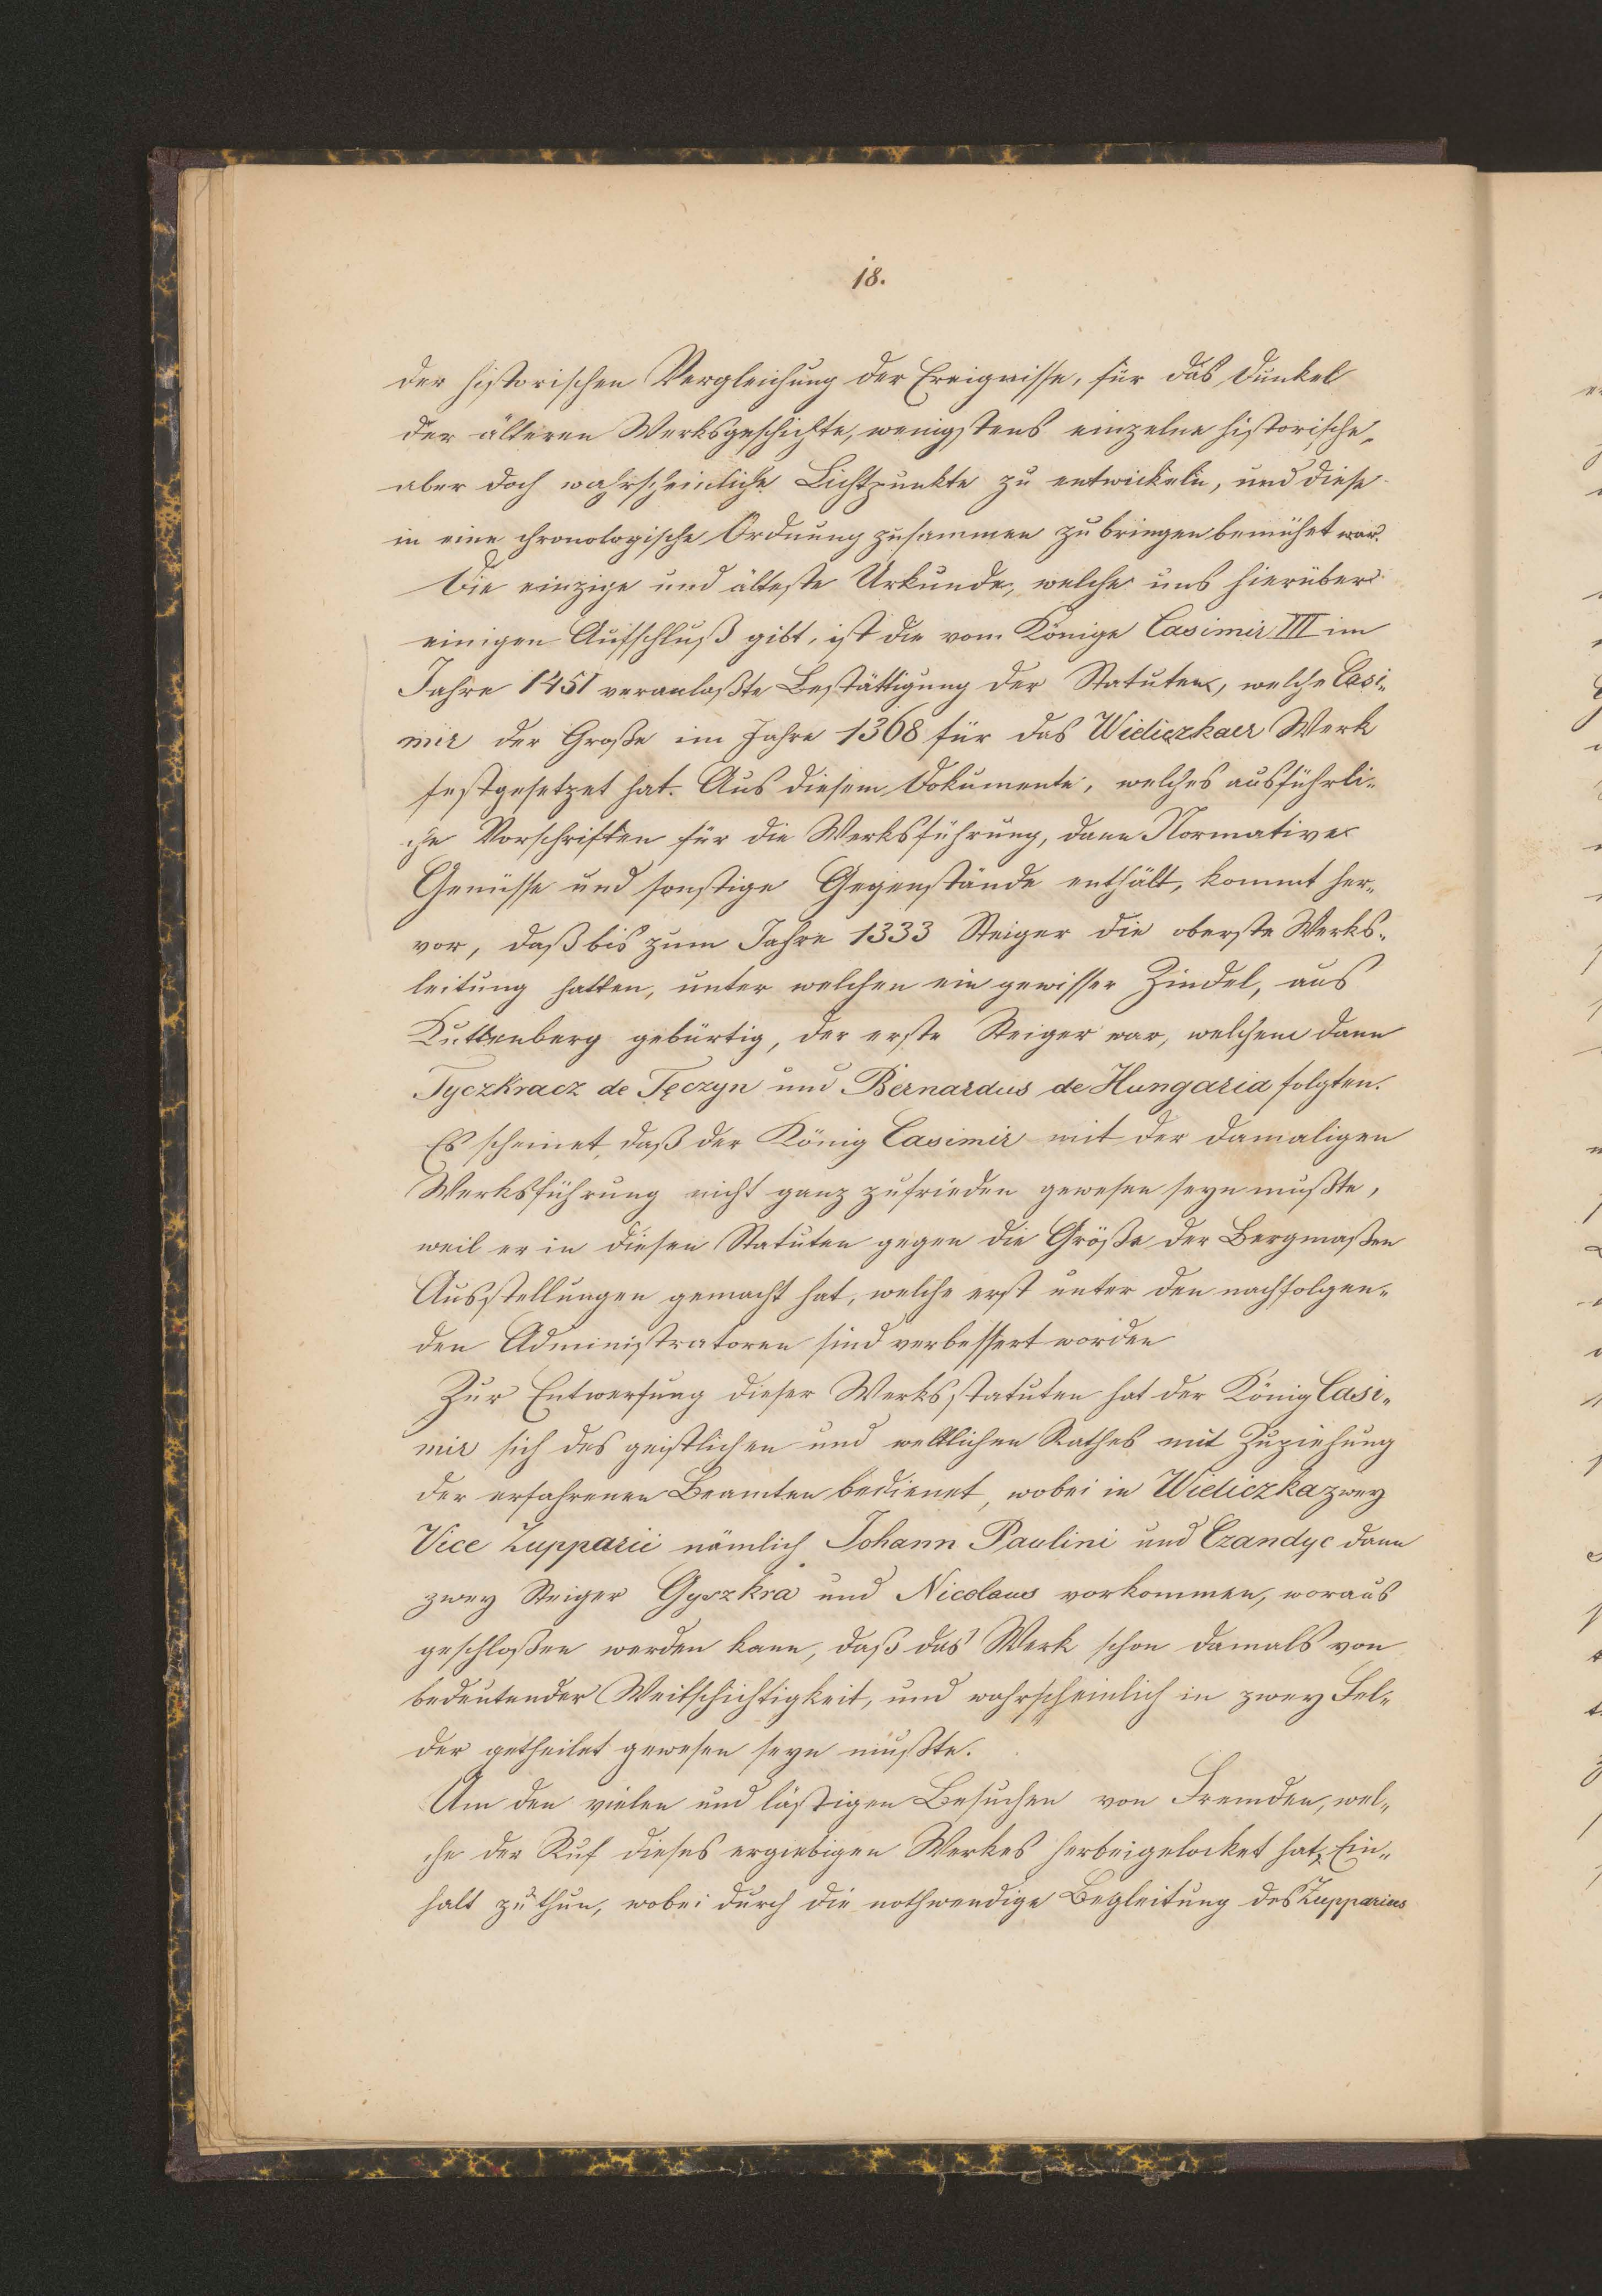 18.
der historischen Vergleichung der Ereignisse, für das Dunkel
der älteren Werksgeschichte, wenigstens einzelne historische,
aber doch wahrscheinliche Lichtpunkte zu entwickeln, und diese
in eine chronologische Ordnung zusammen zu bringen bemühet war.
Die einzige und älteste Urkunde, welche uns hierüber
einigen Aufschluß gibt, ist die vom Könige Casimir III im
Jahre 1451 veranlaßte Bestättigung der Statuten, welche Casi-
mir der Große im Jahre 1368 für das Wieliczkaer Werk
festgesetzet hat. Aus diesem Dokumente, welches ausführli-
che Vorschriften für die Werksführung, dann Normative
Genüsse und sonstige Gegenstände enthält, kommt her-
vor, daß bis zum Jahre 1333 Steiger die oberste Werks-
leitung hatten, unter welchen ein gewisser Zindel, aus
Kuttenberg gebürtig, der erste Steiger war, welchem dann
Tyczkracz de Tęczyn und Bernardus de Hungaria folgten.
Es scheinet, daß der König Casimir mit der damaligen
Werksführung nicht ganz zufrieden gewesen seyn mußte,
weil er in diesen Statuten gegen die Größe der Bergmaßen
Ausstellungen gemacht hat, welche erst unter den nachfolgen-
den Administratoren sind verbessert worden
Zur Entwerfung dieser Werksstatuten hat der König Casi-
mir sich des geistlichen und weltlichen Rathes mit Zuziehung
der erfahrenen Beamten bedienet, wobei in Wieliczka zwey
Vice Zupparii nämlich Johann Paulini und Czandyc dann
zwey Steiger Gyszkra und Nicolaus vorkommen, woraus
geschloßen werden kann, daß das Werk schon damals von
bedeutender Weitschichtigkeit, und wahrscheinlich in zwey Fel-
der getheilet gewesen seyn mußte.
Um den vielen und lästigen Besuchen von Fremden, wel-
che der Ruf dieses ergiebigen Werkes herbeigelocket hat, Ein-
halt zu thun, wobei durch die nothwendige Begleitung des Zupparius